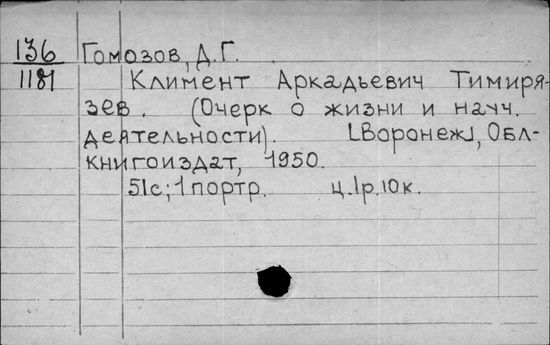 136 Гомозов, Д. Г.
1181 Климент Аркадьевич Тимиря-
зев. (Очерк о жизни и науч.
деятельности). [Воронеж], Обл-
книгоиздат, 1950.
51с; 1 портр. ц. 1р. 10к.